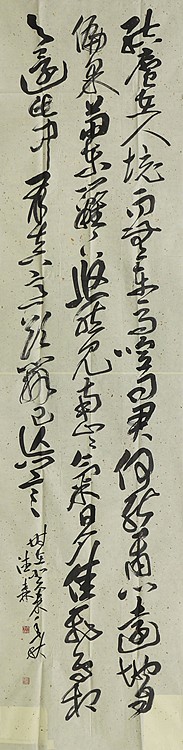 結廬在人境而無車馬喧問君何能爾心遠地自
偏采菊東籬下悠然見南山山氣日夕佳飛鳥相
与還此中有真意欲辯已忘言